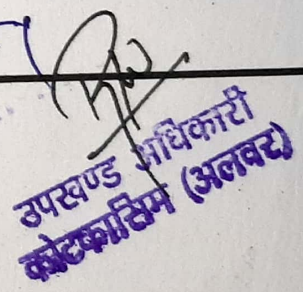 उपखण्ड अधिकारी
कोटकासिम (अलवर)